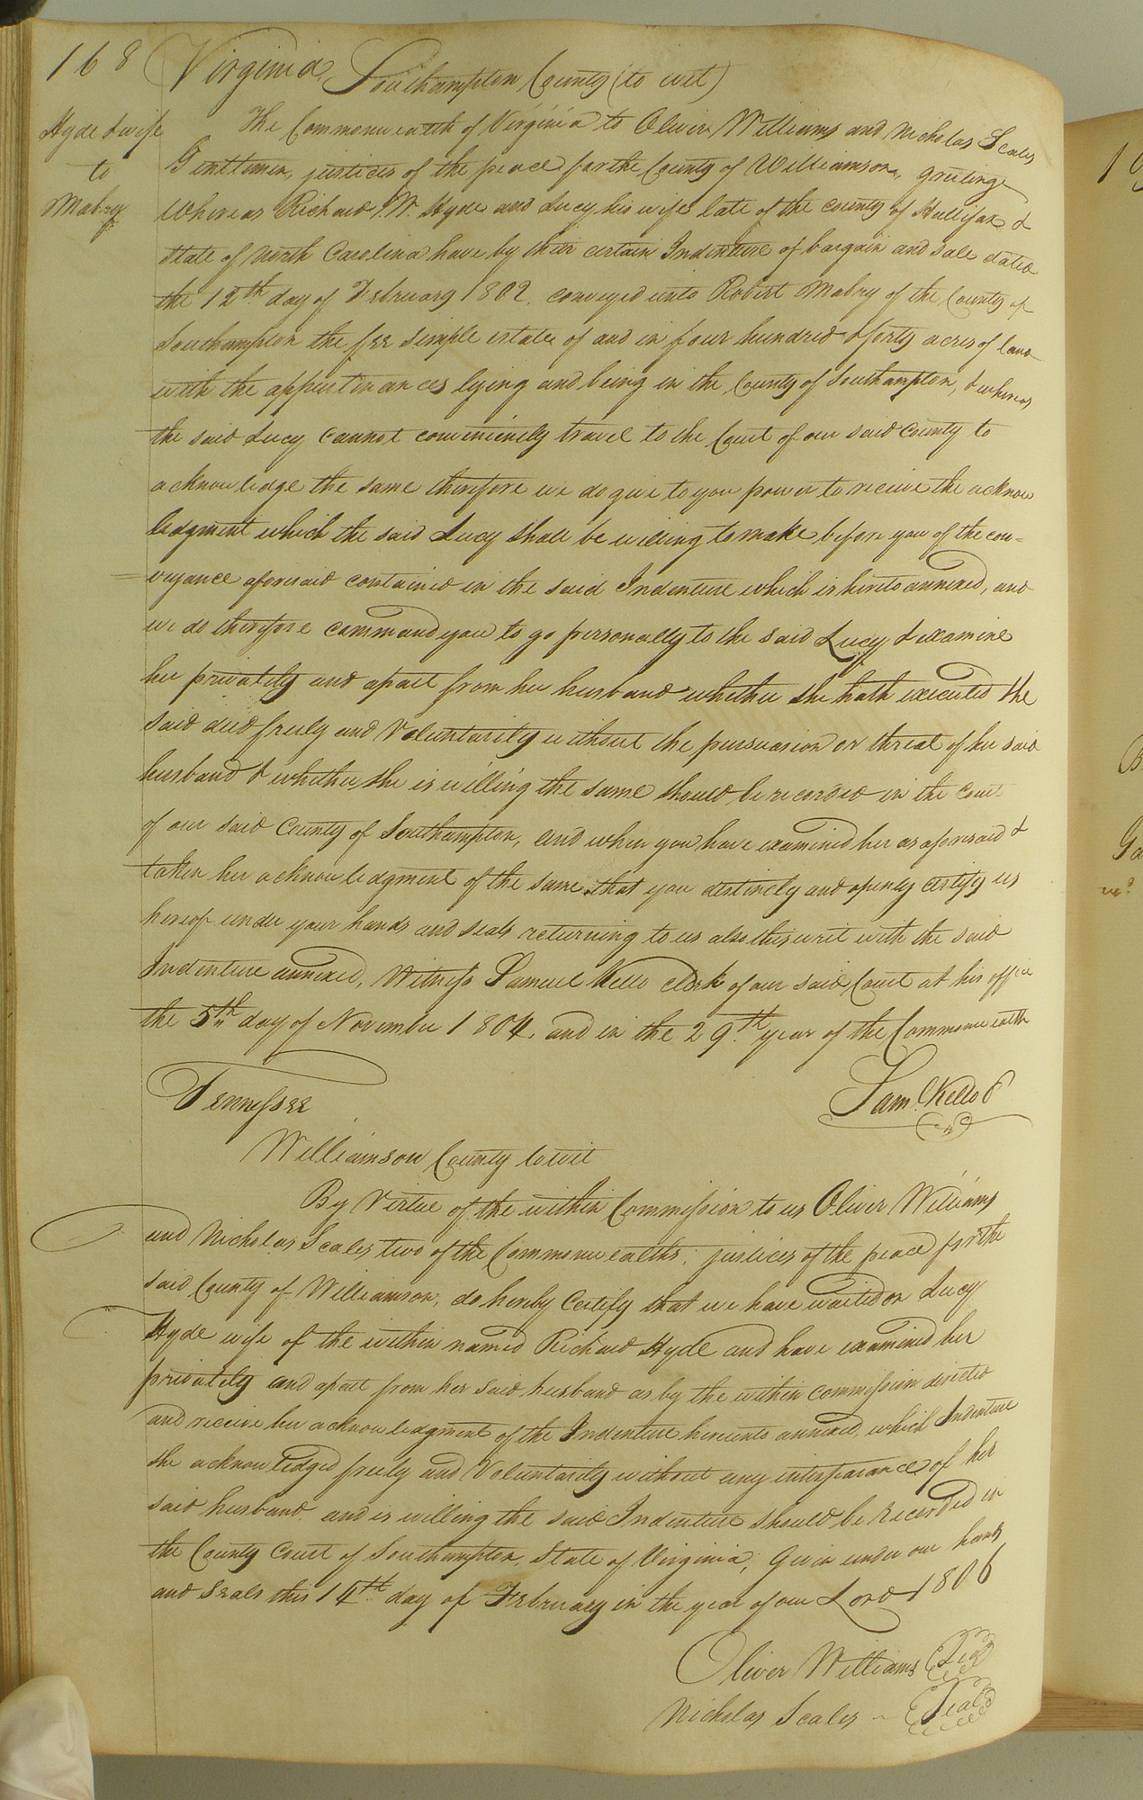 168
Virginia, Southampton County (to wit)
Hyde & wife
to
Mabry
The Commonwealth of Virginia to Oliver Williams and Nicholas Scales
Gentlemen, justices of the peace for the County of Williamson, greeting
Whereas Richard W. Hyde and Lucy his wife late of the county of Hallifax &
State of North Carolina have by their certain Indenture of bargain and sale dated
the 12th day of February 1802. conveyed unto Robert Mabry of the County of
Southampton the fee simple estate of and in four hundred & forty acres of land
with the appurtinances lying and being in the County of Southampton, & whereas
the said Lucy cannot conveniently travel to the Court of our said County to
acknowledge the same therefore we do give to you power to receive the acknow
ledgment which the said Lucy shall be willing to make before you of the con=
=veyance aforesaid contained in the said Indenture which is hereto annexed, and
we do therefore command you to go personally to the said Lucy & examine
her privately and apart from her husband whether she hath executed the
said deed freely and Voluntarily without the persuasion or threat of her said
husband & whether she is willing the same should be recorded in the Court
of our said County of Southampton, and when you have examined her as aforesaid &
taken her acknowledgment of the same that you distinctly and openly certify us
hereof under your hands and seals returning to us also this writ with the said
Indenture annexed, Witness Samuel Kello clerk of our said Court at his office
the 5th day of November 1804, and in the 29th year of the Commonwealth
Sam. Kello
Tennessee
Williamson County to wit
By Virtue of the within Commission to us Oliver Williams
and Nicholas Scales two of the Commonwealths justices of the peace for the
said County of Williamson, do hereby Certify that we have waited on Lucy
Hyde wife of the within named Richard Hyde and have examined her
privately and apart from her said husband as by the within commission directed
and receive her acknowledgment of the Indenture hereunto annexed, which Indenture
she acknowledged freely and Voluntarily without any interfearance of her
said husband and is willing the said Indenture should be Recorded in
the County Court of Southampton, State of Virginia, Given under our hands
and Seals this 14th day of February in the year of our Lord 1806
Oliver Williams Seal
Nicholas Scales - Seal